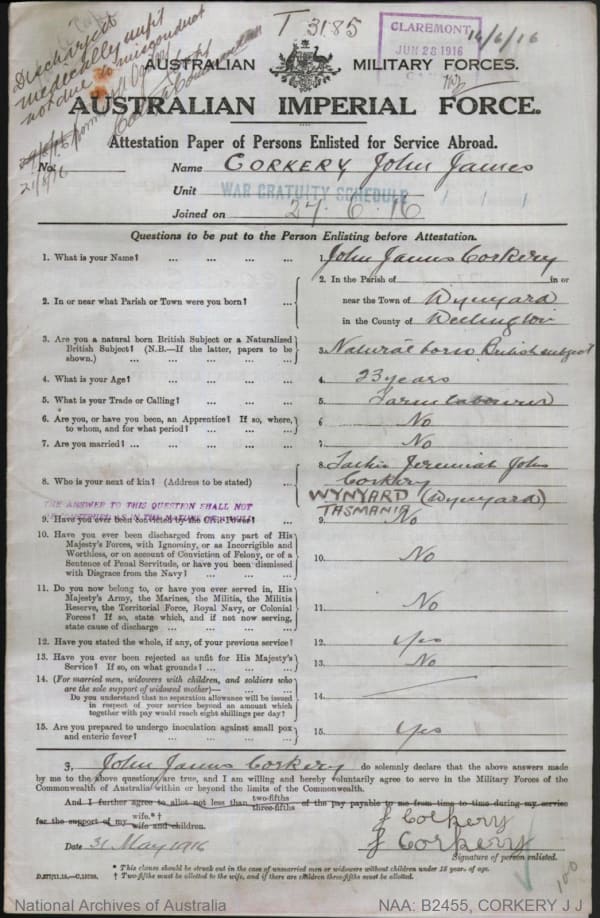 T 3185
CLAREMONT
JUN 28 1916
14/6/16
Discharged
medically unfit
not due to misconduct
21/8/16
AUSTRALIAN MILITARY FORCES.
AUSTRALIAN IMPERIAL FORCE.
Attestation Paper of Persons Enlisted for Service Abroad.
No. Name CORKERY John James
Unit WAR GRATUITY SCHEDULE / / /
Joined on 27.6.16
Questions to be put to the Person Enlisting before Attestation.
1. What is your Name? ... ... ... ... 1. John James Corkery
2. In or near what Parish or Town were you born? ... 2. In the Parish of in or
near the Town of Wynyard
in the County of Wellington
3. Are you a natural born British Subject or a Naturalized
British Subject? (N.B.—If the latter, papers to be
shown.) ... ... ... ... ... 3. Natural born British subject
4. What is your Age? ... ... ... ... 4. 23 years
5. What is your Trade or Calling? ... ... ... 5. Farm labourer
6. Are you, or have you been, an Apprentice? If so, where,
to whom, and for what period? ... ... ... 6. No
7. Are you married? ... ... ... ... 7. No
8. Who is your next of kin? (Address to be stated) ... 8. Father Jeremiah John
Corkery
WYNYARD (Wynyard)
TASMANIA
THE ANSWER TO THIS QUESTION SHALL NOT
9. Have you ever been convicted by the Civil Power? 9. No
10. Have you ever been discharged from any part of His
Majesty's Forces, with Ignominy, or as Incorrigible and
Worthless, or on account of Conviction of Felony, or of a
Sentence of Penal Servitude, or have you been dismissed
with Disgrace from the Navy? ... ... ... 10. No
11. Do you now belong to, or have you ever served in, His
Majesty's Army, the Marines, the Militia, the Militia
Reserve, the Territorial Force, Royal Navy, or Colonial
Forces? If so, state which, and if not now serving,
state cause of discharge ... ... ... ... 11. No
12. Have you stated the whole, if any, of your previous service? 12. Yes
13. Have you ever been rejected as unfit for His Majesty's
Service? If so, on what grounds? ... ... ... 13. No
14. (For married men, widowers with children, and soldiers who
are the sole support of widowed mother)—
Do you understand that no separation allowance will be issued
in respect of your service beyond an amount which
together with pay would reach eight shillings per day? 14.
15. Are you prepared to undergo inoculation against small pox
and enteric fever? ... ... ... ... 15. Yes
I, John James Corkery do solemnly declare that the above answers made
by me to the above questions are true, and I am willing and hereby voluntarily agree to serve in the Military Forces of the
Commonwealth of Australia within or beyond the limits of the Commonwealth.
And I further agree to allot not less than two-fifths three-fifths of the pay payable to me from time to time during my service
for the support of my wife.*† wife and children.
J Corkery
Date 31 May 1916 J Corkery
Signature of person enlisted.
* This clause should be struck out in the case of unmarried men or widowers without children under 18 years of age.
† Two-fifths must be allotted to the wife, and if there are children three-fifths must be allotted.
100
National Archives of Australia NAA: B2455, CORKERY J J